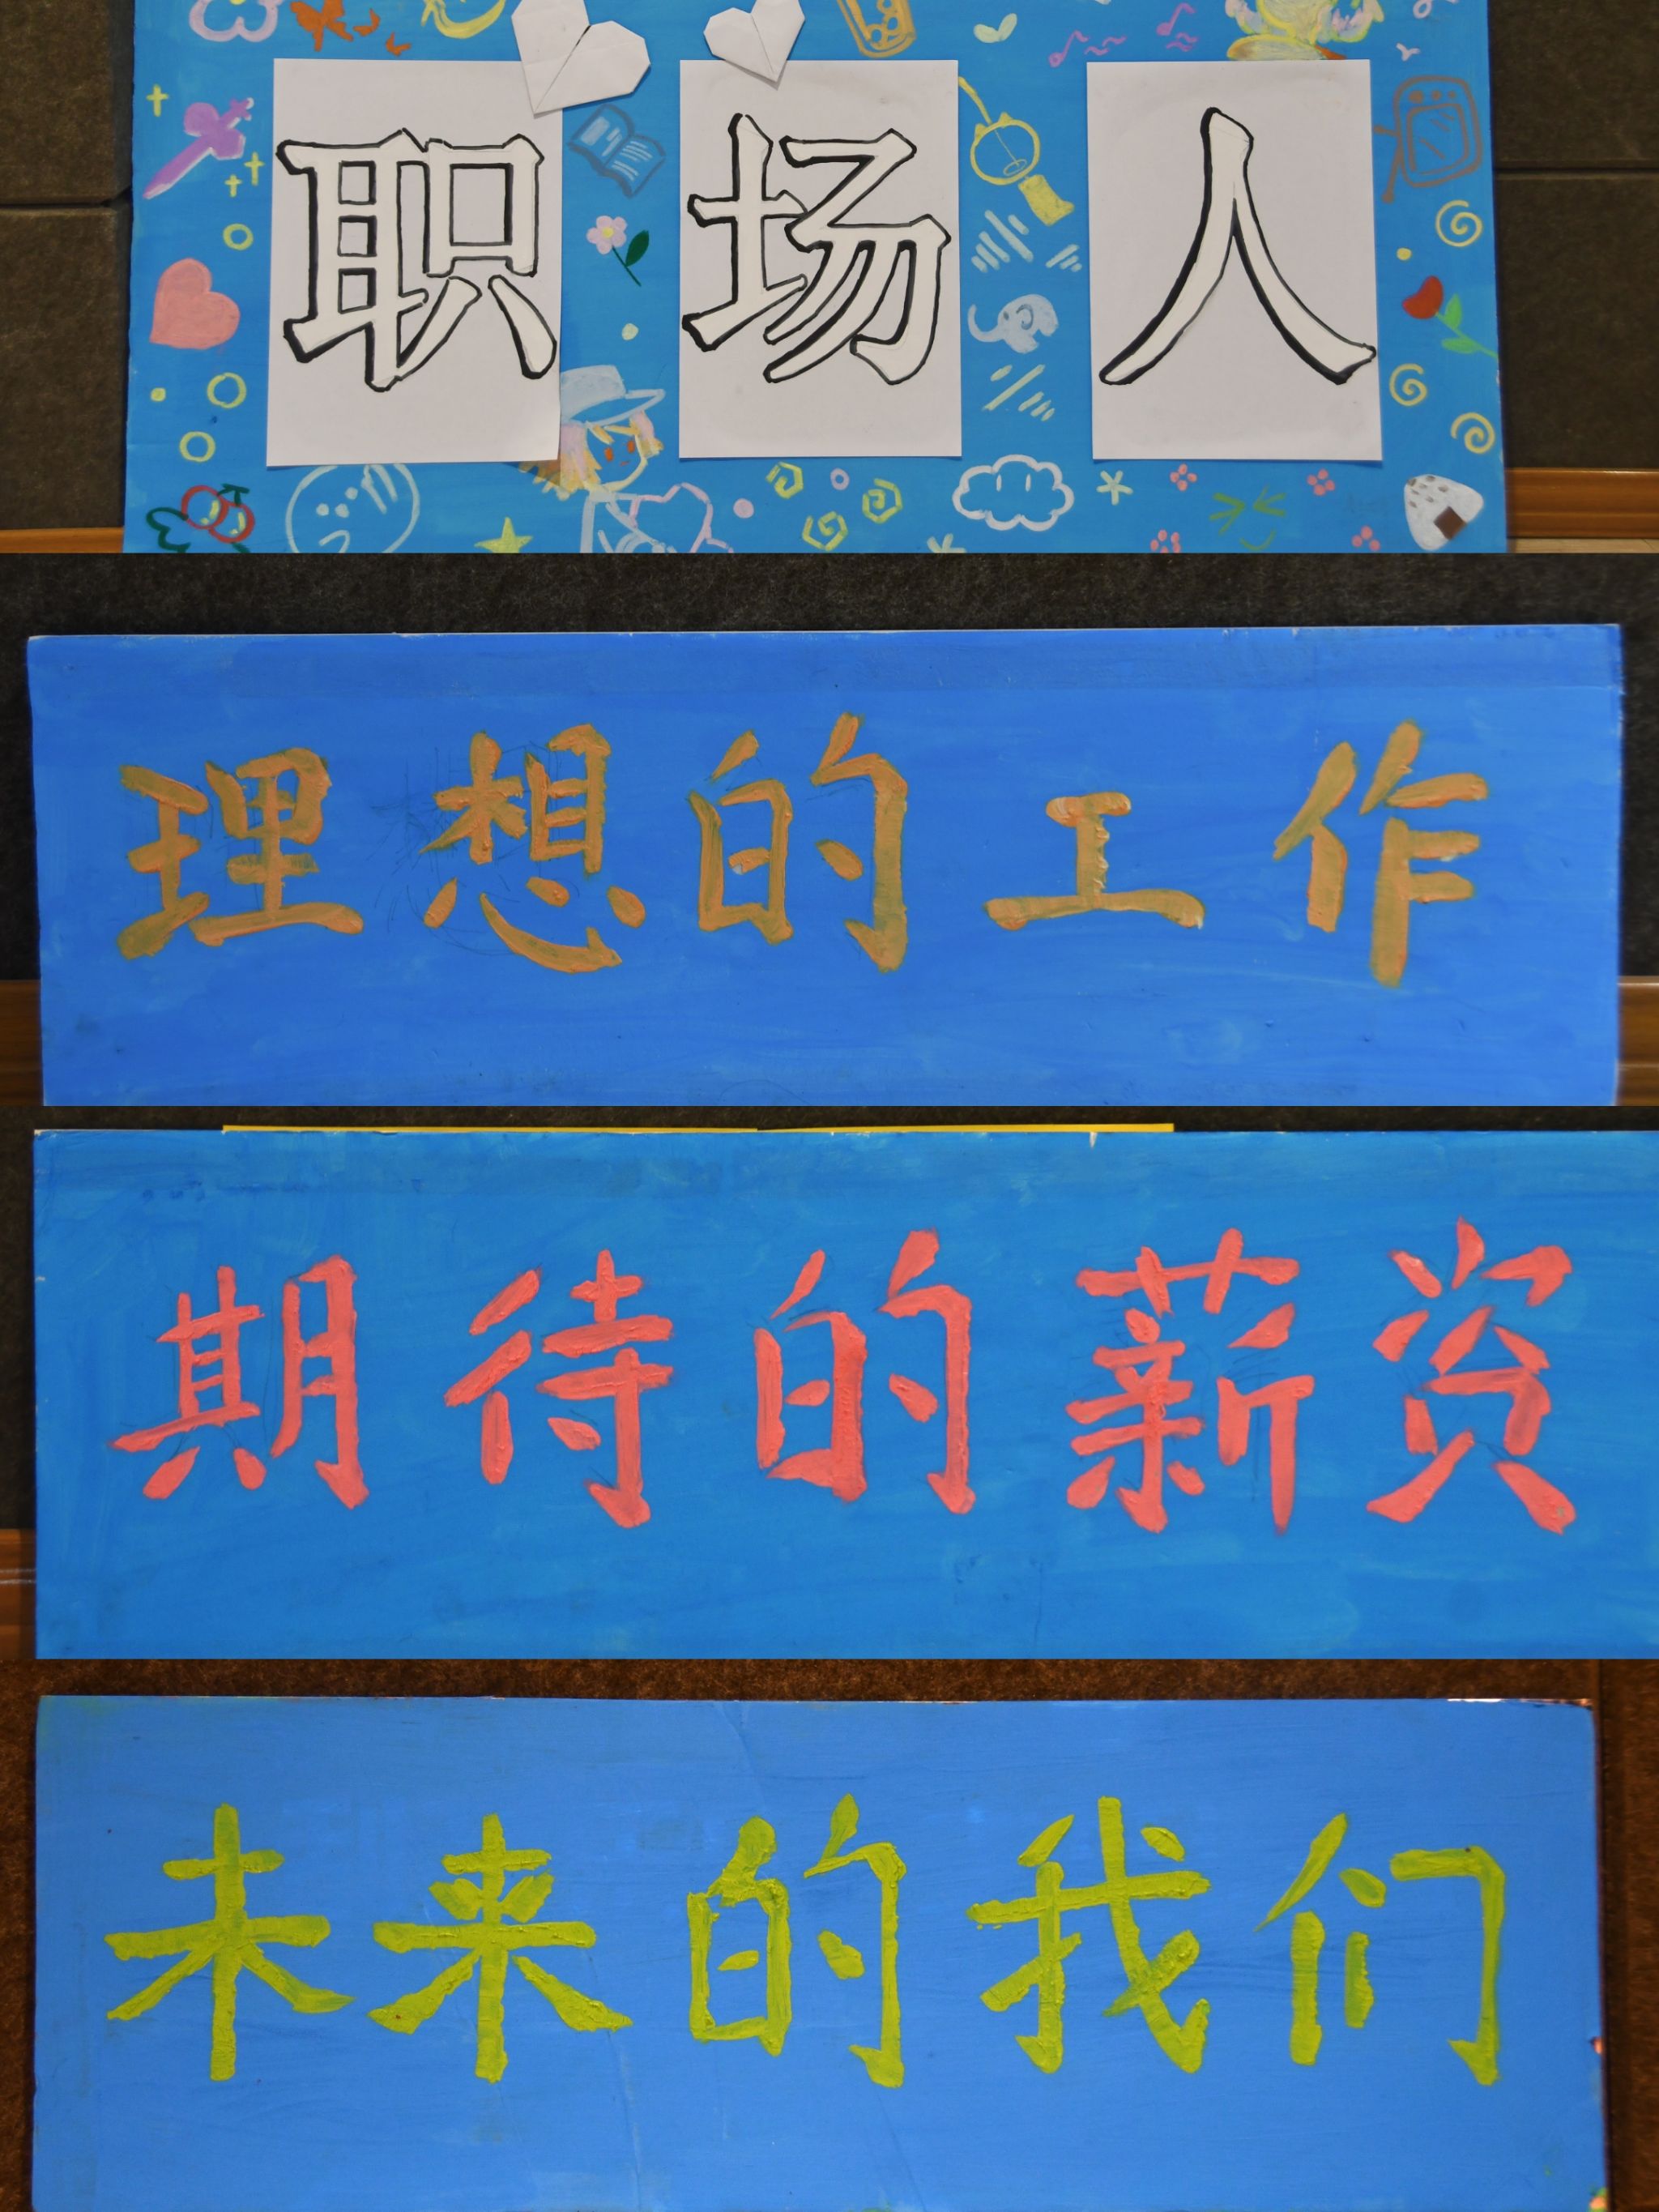 职场人
理想的工作
期待的薪资
未来的我们